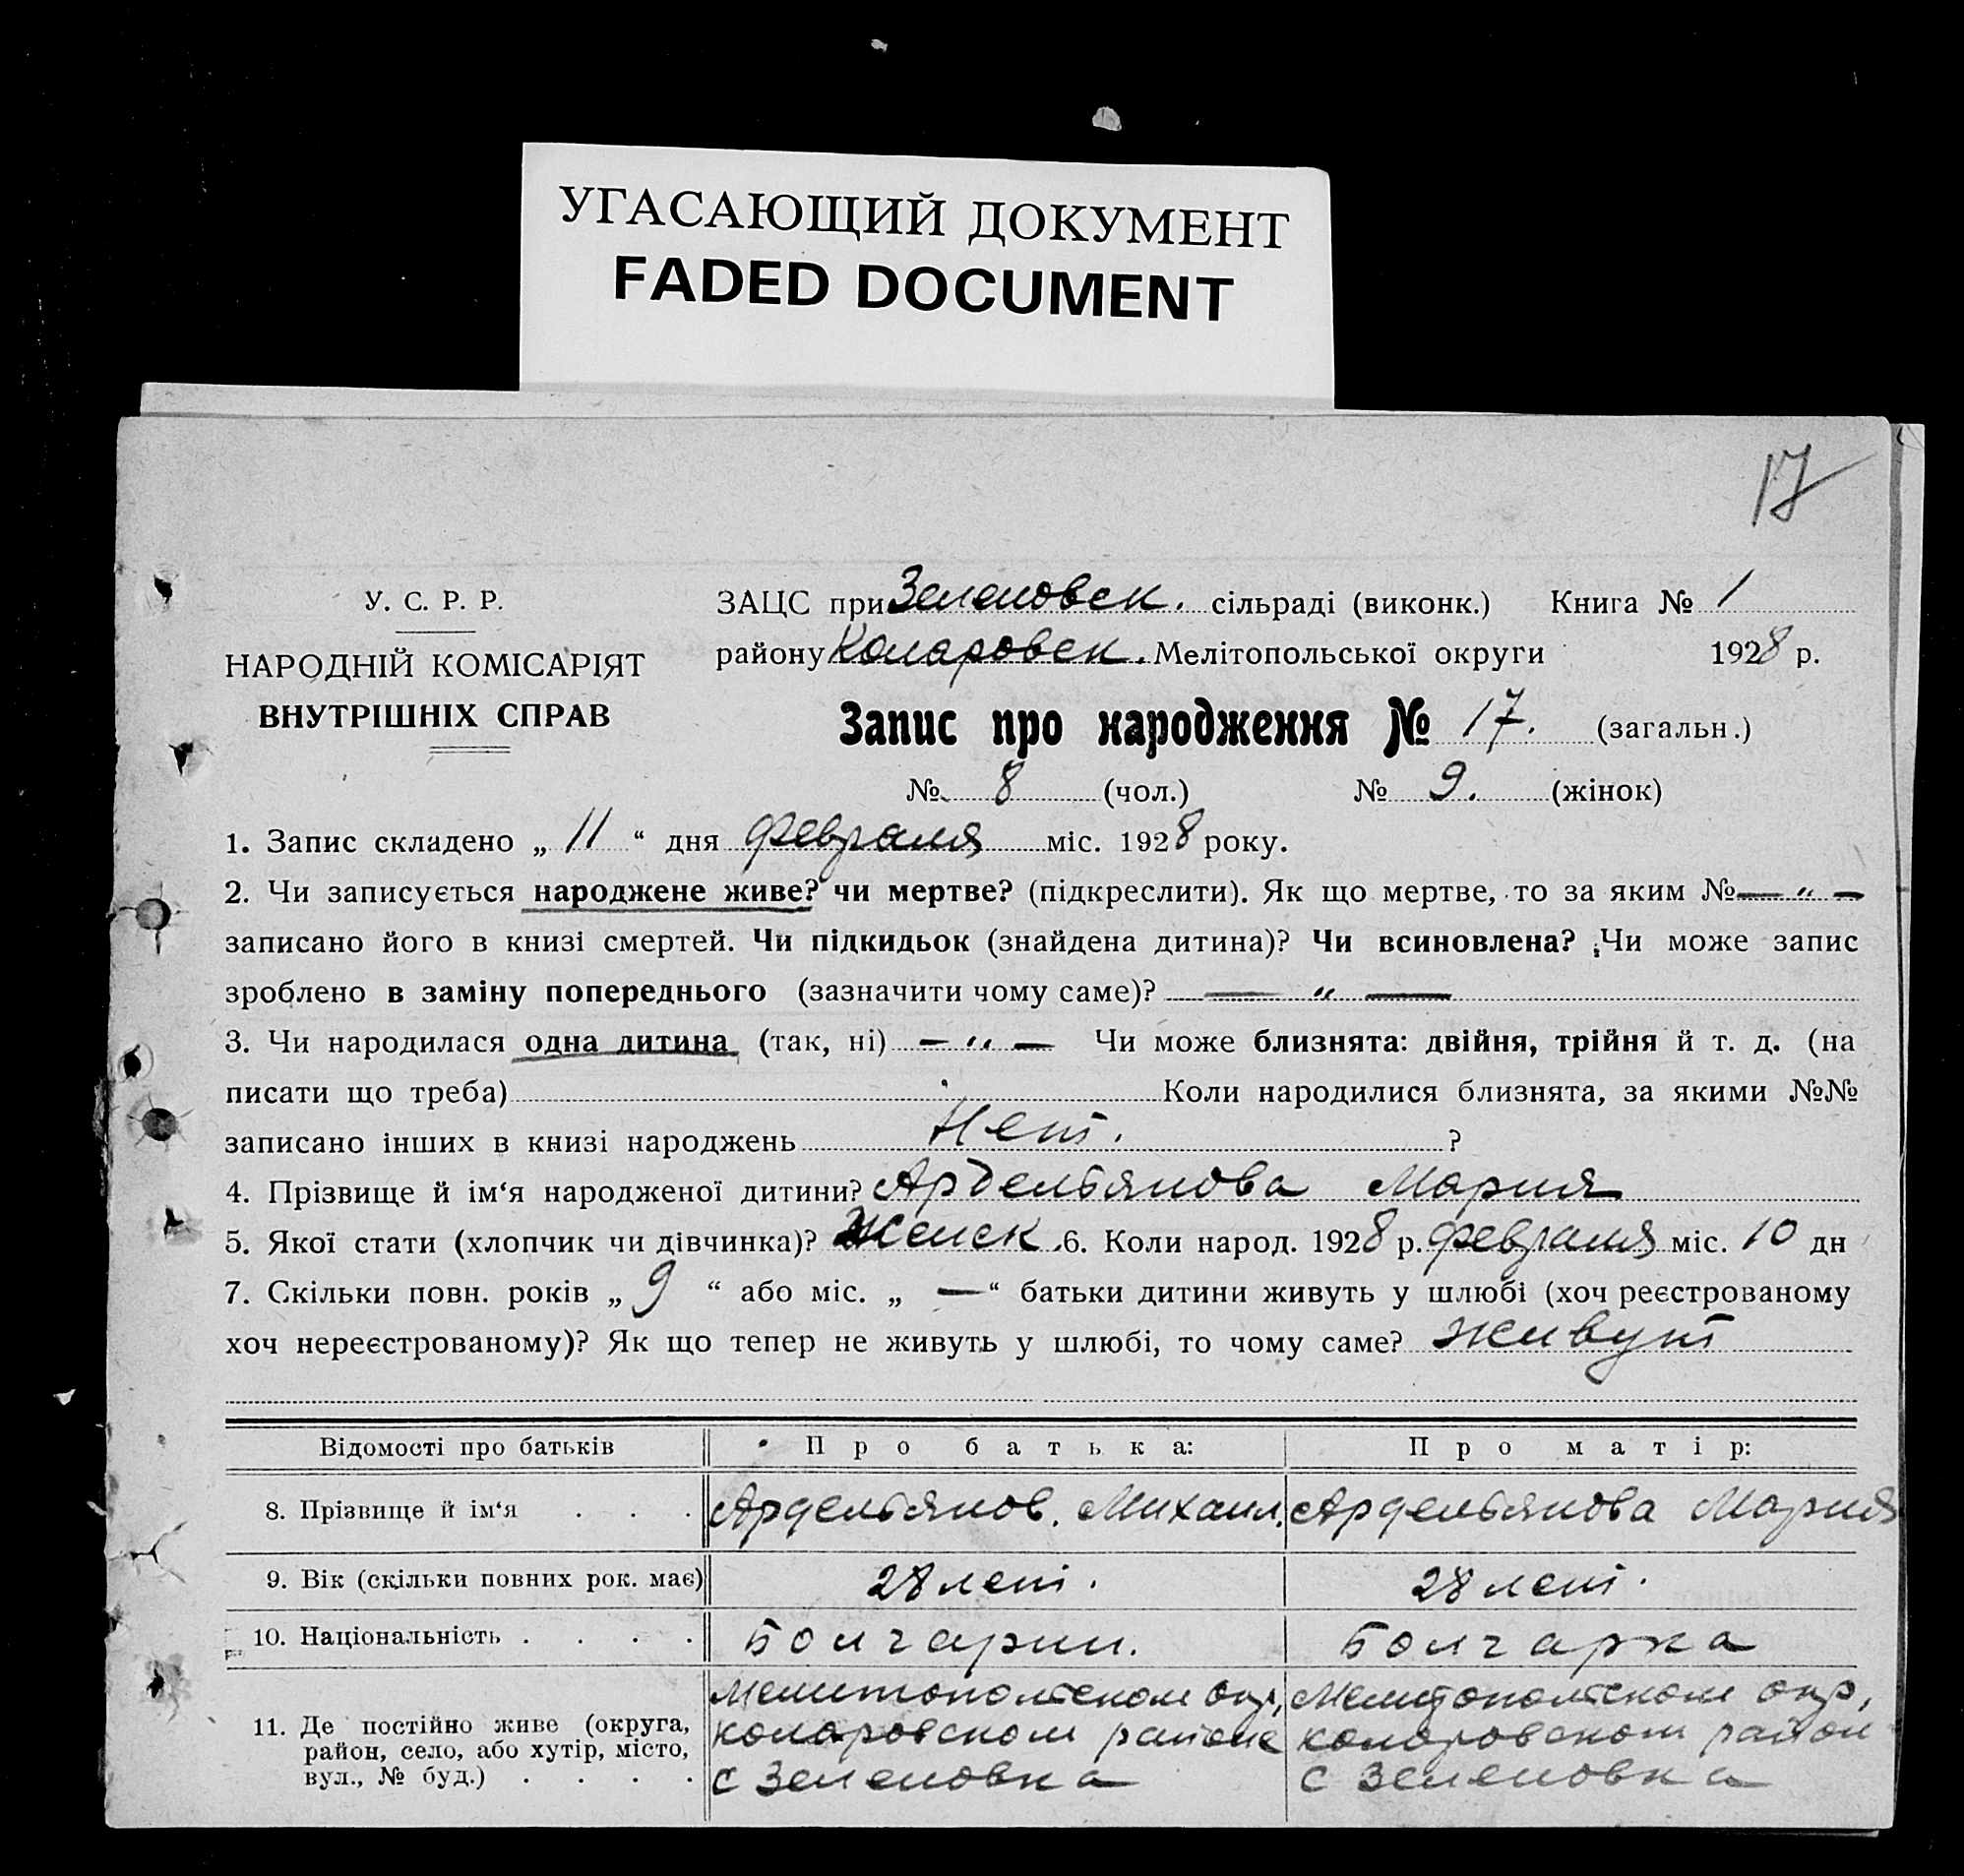 УГАСАЮЩИЙ ДОКУМЕНТ
FADED DOCUMENT
17
У. С. Р. Р.
НАРОДНІЙ КОМІСАРІЯТ
ВНУТРІШНІХ СПРАВ
ЗАЦС при Зеленовск. сільраді (виконк.) Книга № 1
району Коларовск. Мелітопольської округи 1928 р.
Запис про народження № 17. (загальн.)
№ 8 (чол.) № 9. (жінок)
1. Запис складено „ 11 “ дня февраля міс. 1928 року.
2. Чи записується народжене живе? чи мертве? (підкреслити). Як що мертве, то за яким № — „ —
записано його в книзі смертей. Чи підкидьок (знайдена дитина)? Чи всиновлена? Чи може запис
зроблено в заміну попереднього (зазначити чому саме)? — „ —
3. Чи народилася одна дитина (так, ні) — „ — Чи може близнята: двійня, трійня й т. д. (на
писати що треба) Коли народилися близнята, за якими №№
записано інших в книзі народжень Нет. ?
4. Прізвище й ім‘я народженої дитини? Ардельянова Мария
5. Якої стати (хлопчик чи дівчинка)? Женск. 6. Коли народ. 1928 р. февраля міс. 10 дн
7. Скільки повн. років „ 9 “ або міс. „ — “ батьки дитини живуть у шлюбі (хоч реєстрованому
хоч нереєстрованому)? Як що тепер не живуть у шлюбі, то чому саме? живут
Відомості про батьків Про батька: Про матір:
8. Прізвище й ім‘я . . . Ардельянов. Михаил. Ардельянова Мария
9. Вік (скільки повних рок. має) 28 лет. 28 лет.
10. Національність . . . . Болгарин. Болгарка
11. Де постійно живе (округа, район, село, або хутір, місто, вул., № буд.) . . . .
Мелитопольском окр, Мелитопольском окр,
коларовском районе коларовском район
с Зеленовка с Зеленовка